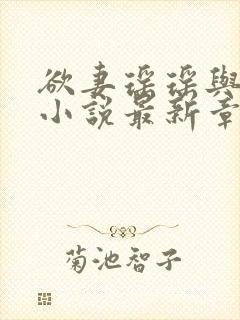 欲妻瑶瑶與
小說最新章
菊池智子